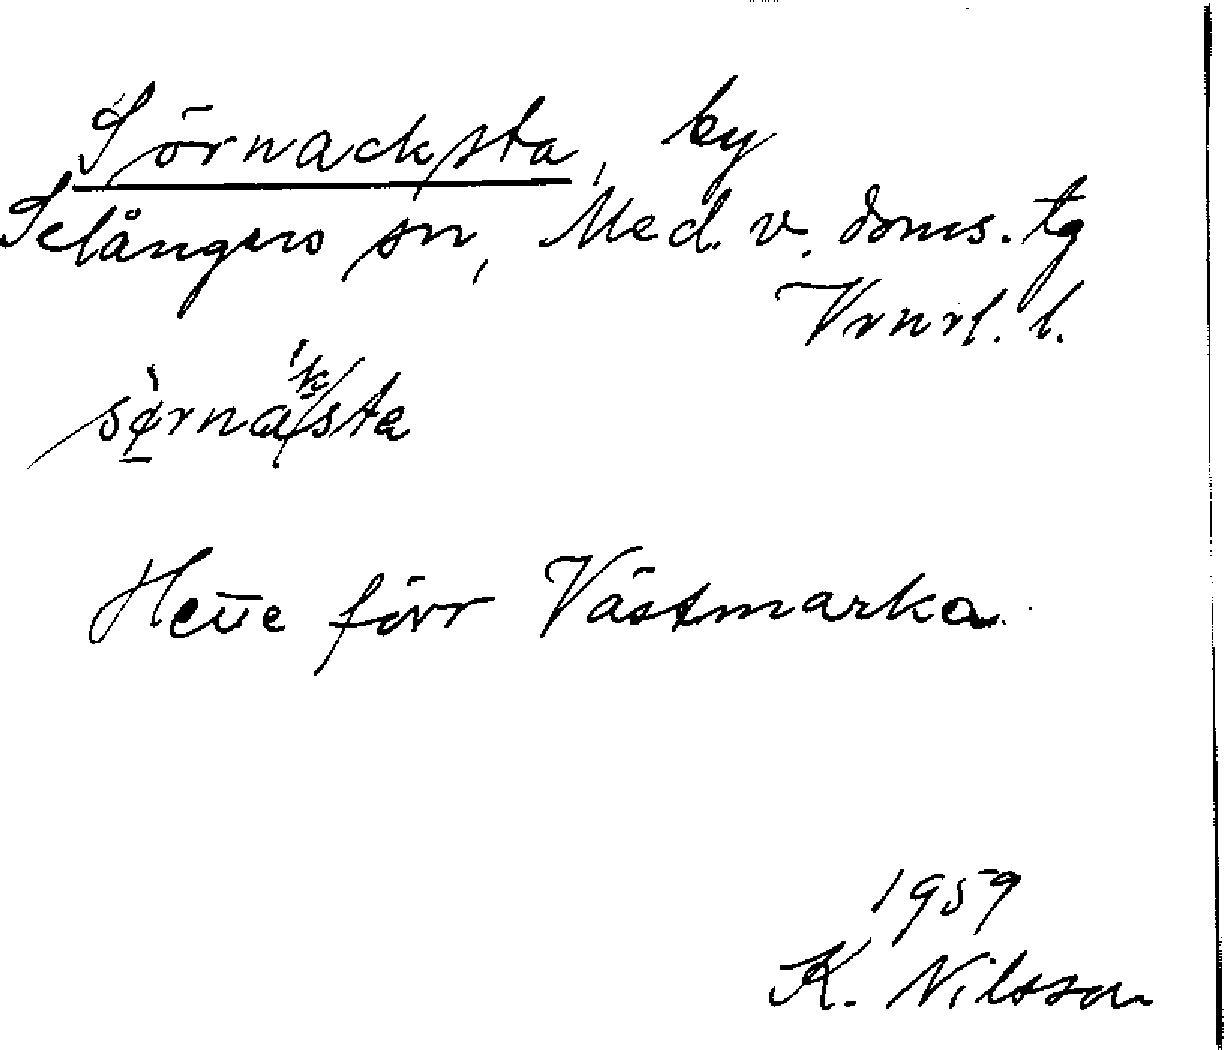 Sörnacksta, by
Selångers sn, Med. v. doms. tg
Vrnrl. l.
Hette förr Västmarka.
1959
K. Nilsson